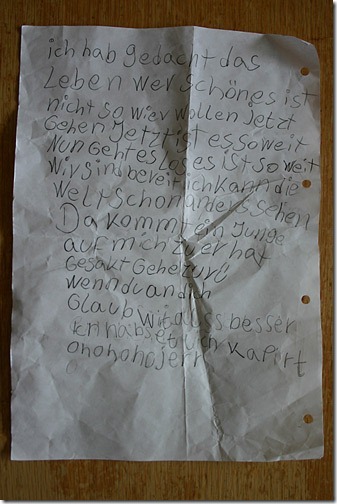 ich hab gedacht das
Leben wer schönes ist
nicht so wier wollen jetzt
Gehen Jetzt ist es soweit
Nun Geht es Los es ist soweit
wir sind bereit ich kann die
welt schon anders sehen
Da kommt ein Junge
auf mich zu er hat
Gesakt Gehe zurü
wenn du an dich
Glaub wird alls besser
ich habs
ohohohojerr